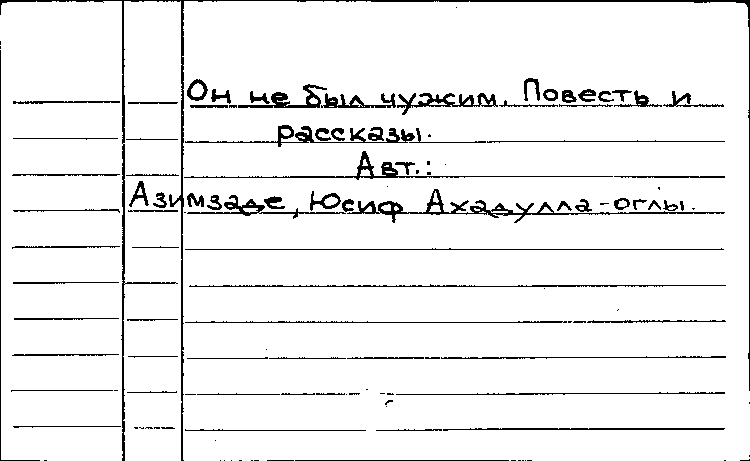 Он не был чужим. Повесть и
рассказы.
Авт.:
Азимзаде, Юсиф Ахадулла-оглы.